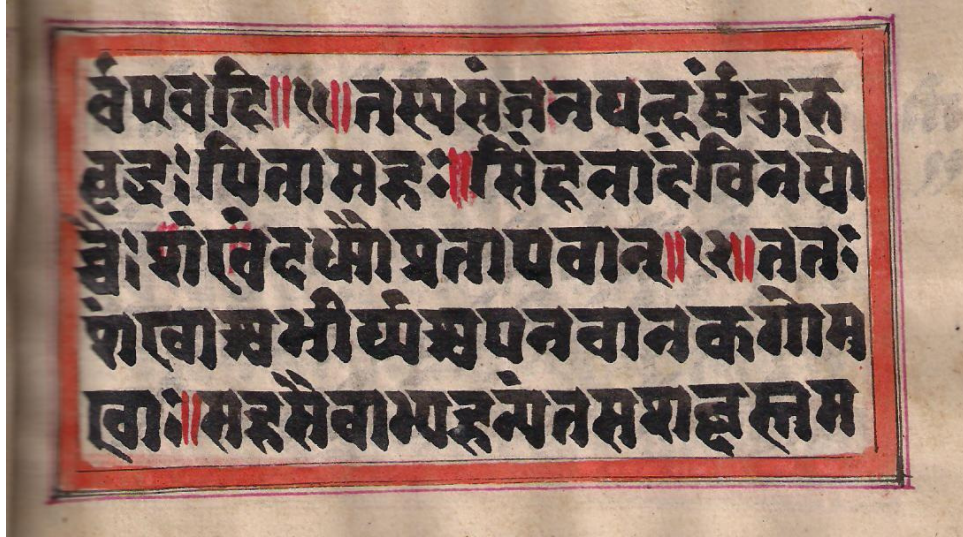 र्वएवहि॥११॥तस्यसंजनयन्हर्षंकुरु
वृद्धः पितामहः॥सिंहनादंविनद्यो
च्चैः शंखंदध्मौप्रतापवान्॥१२॥ततः
शंखाश्चभीर्यश्चपनवानकगोमु
खाः॥सहसैवाभ्यहन्यंतसशब्दस्तुमु